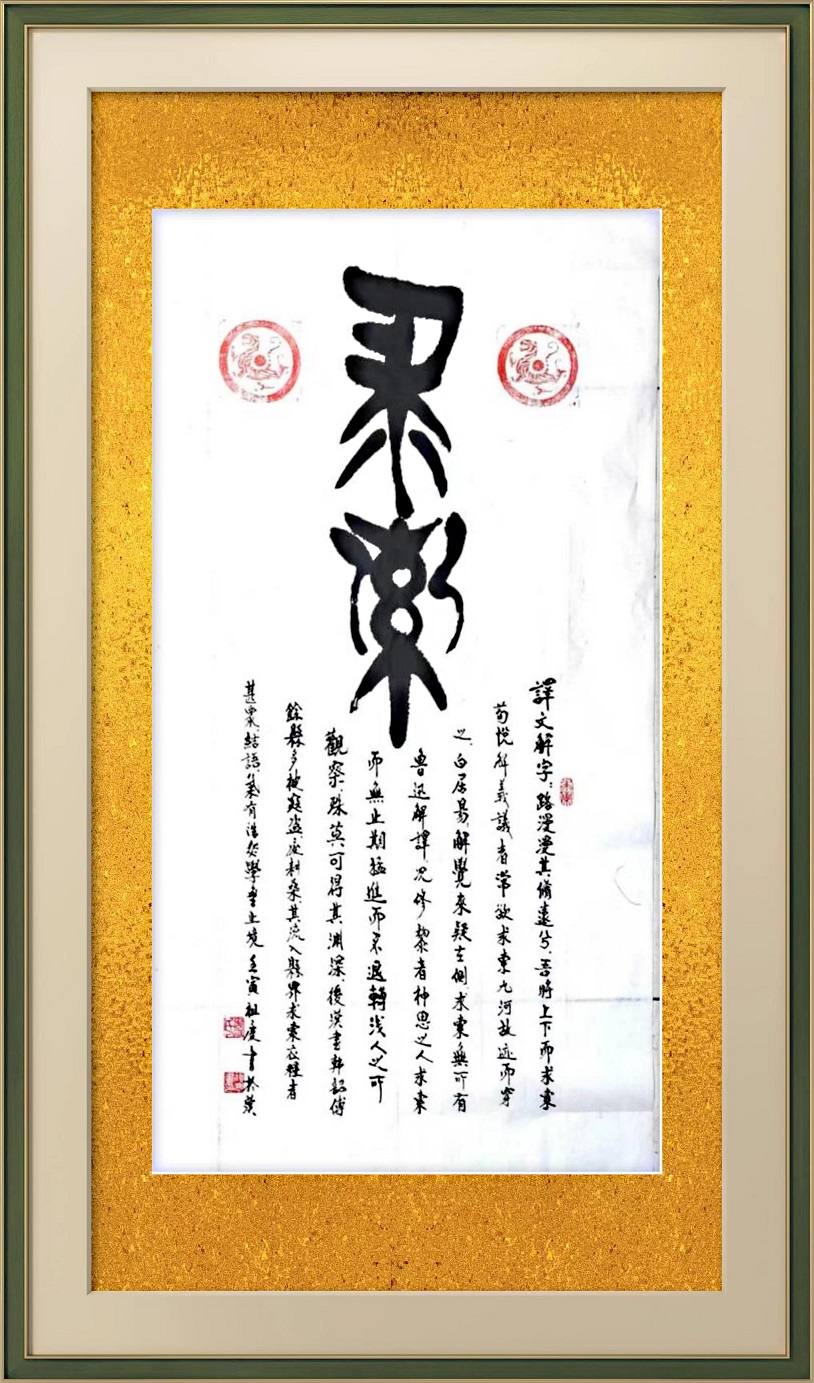 求索
譯文解字：路漫漫其脩遠兮、吾將上下而求索
荀悅解義議者常欲求索九河故迹而穿
之、白居易解覺來疑在側、求索無所有
魯迅解譯、况修黎者神思之人求索
而無止期猛進而不退轉淺人之所
觀察、殊莫可得其淵深、後漢書韓韶傳
餘縣多被寇盜廢耕桑其流入縣界求索衣糧者
甚衆、結語、求索有法然學無止境 壬寅 祖慶 書於